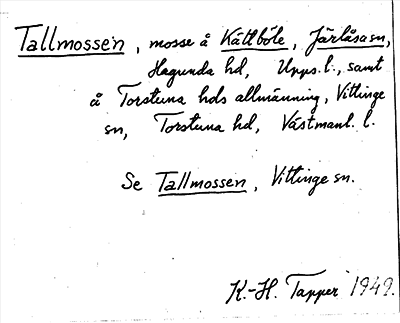 Tallmossen, mosse å Kättböle, Järlåsa sn,
Hagunda hd, Upps. l., samt
å Torstuna hds allmänning, Vittinge
sn, Torstuna hd, Västmanl. l.
Se Tallmossen, Vittinge sn.
K.-H. Tapper 1949.